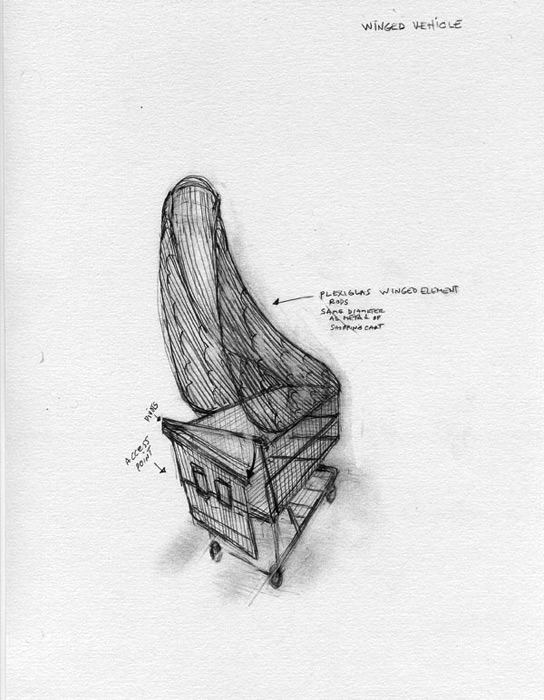 WINGED VEHICLE
PLEXIGLAS WINGED ELEMENT
RODS
SAME DIAMETER
AS METAL OF
SHOPPING CART
ACCESS
POINT